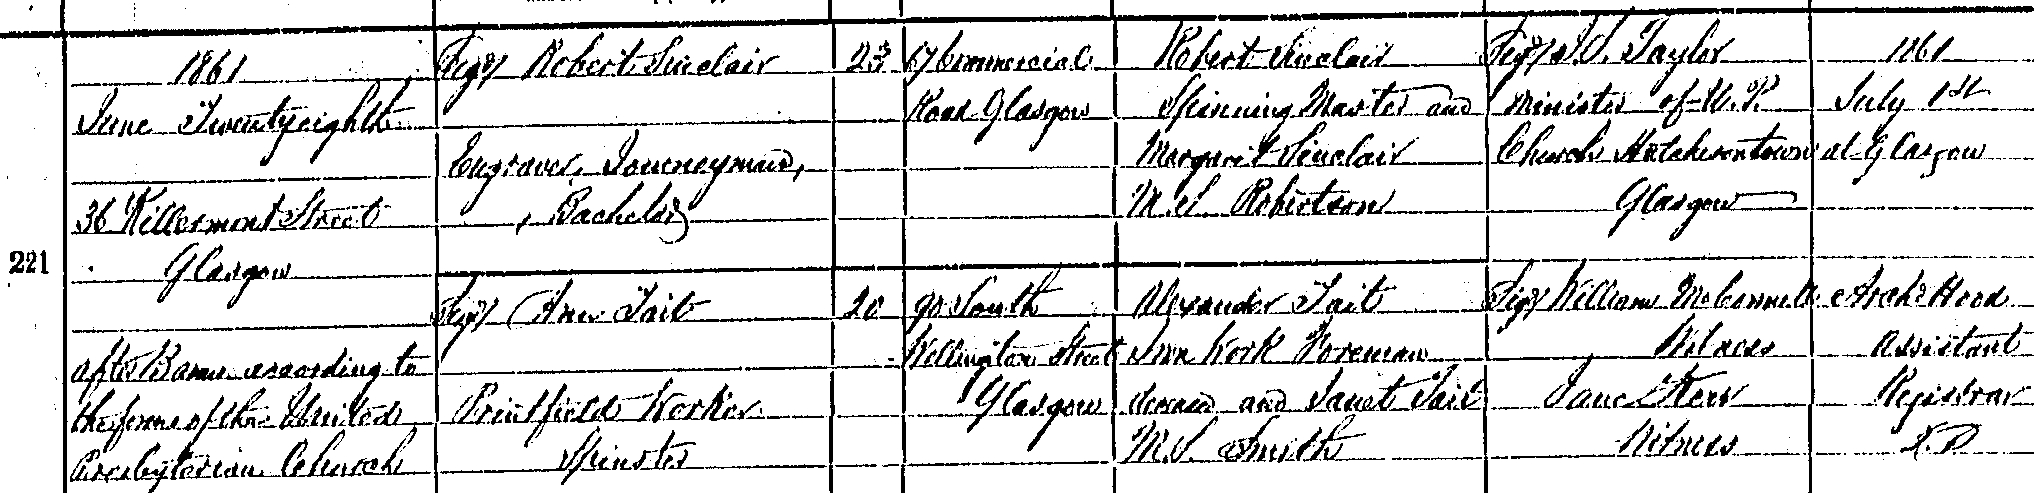 221
1861
June Twentyeighth
36 Killermont Street
Glasgow
after Banns according to
the forms of the United
Presbyterian Church
Sigd Robert Sinclair
Engraver, Journeyman,
Bachelor
Sigd Ann Tait
Printfield Worker
Spinster
23
20
67 Commercial
Road Glasgow
90 South
Wellington Street
Glasgow
Robert Sinclair
Spinning Master and
Margaret Sinclair
M.S Robertson
Alexander Tait
Iron Work Foreman
deceased and Janet Tait
M.S. Smith
Sigd Taylor
Minister of U.P.
Church Hutchesontown
Glasgow
Sigd William McConnell
Witness
Jane Kerr
Witness
1861
July 1st
at Glasgow
Archd Hood
Assistant
Registrar